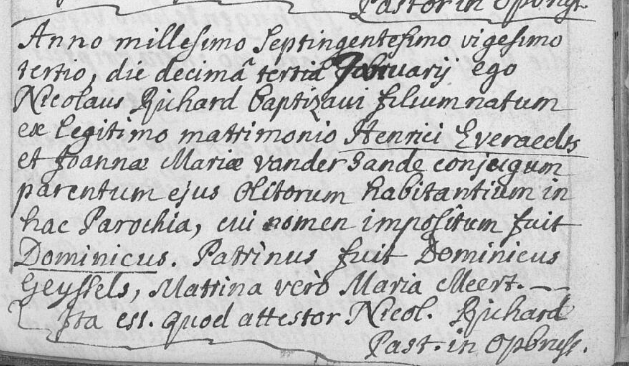 Pastor in Opbruss.
Anno millesimo Septingentesimo vigesimo
tertio, die decimâ tertiâ Februarij ego
Nicolaus Richard baptizavi filium natum
ex legitimo matrimonio Henrici Everaedts
et Joannæ Mariæ vander Sande conjugum
parentum ejus Olitorum habitantium in
hac Parochia, cui nomen impositum fuit
Dominicus. Patrinus fuit Dominicus
Geyssels, Matrina verò Maria Meert.
Ita est. quod attestor Nicol. Richard
Past. in Opbruss.